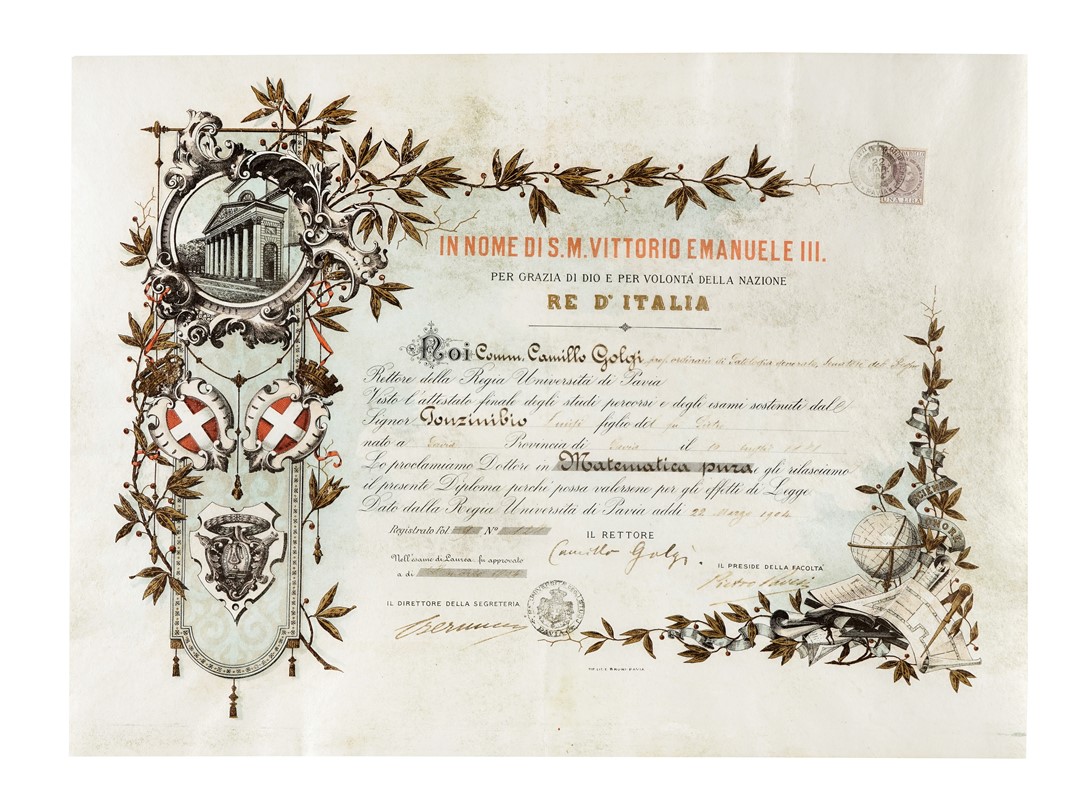 UNA LIRA
IN NOME DI S.M. VITTORIO EMANUELE III.
PER GRAZIA DI DIO E PER VOLONTÀ DELLA NAZIONE
RE D'ITALIA
Noi Comm. Camillo Golgi prof. ordinario di Patologia generale, Senatore del
Rettore della Regia Università di Pavia
Visto l'attestato finale degli studi percorsi e degli esami sostenuti dal
Signor figlio del fu
nato a Pavia Provincia di Pavia il
Lo proclamiamo Dottore in Matematica pura, e gli rilasciamo
il presente Diploma perchè possa valersene per gli effetti di Legge
Dato dalla Regia Università di Pavia addì 22 Marzo 1904
Registrato Fol. Nº
IL RETTORE
Camillo Golgi.
Nell'esame di Laurea fu approvato
a dì
IL PRESIDE DELLA FACOLTÀ
Pietro Pavesi
IL DIRETTORE DELLA SEGRETERIA
PAVIA